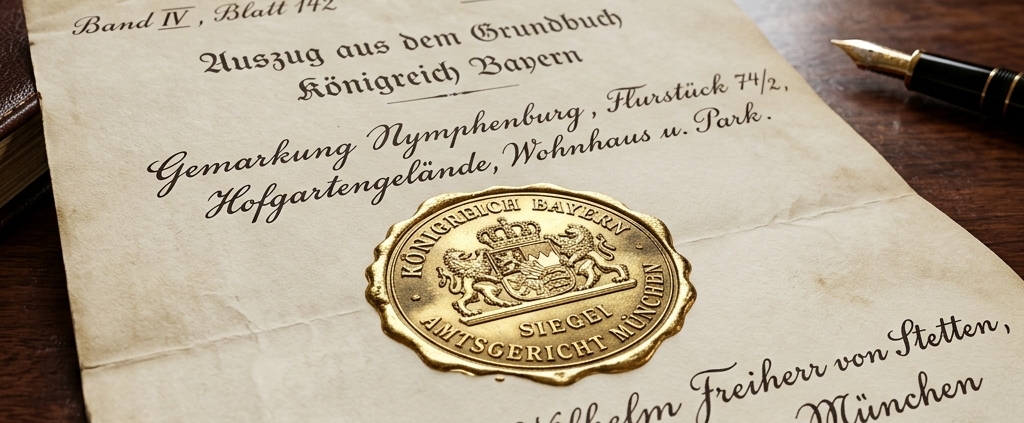 Band IV, Blatt 142
Auszug aus dem Grundbuch
Königreich Bayern
Gemarkung Nymphenburg, Flurstück 74/2,
Hofgartengelände, Wohnhaus u. Park.
KÖNIGREICH BAYERN
SIEGEL
AMTSGERICHT MÜNCHEN
Wilhelm Freiherr von Stetten,
München